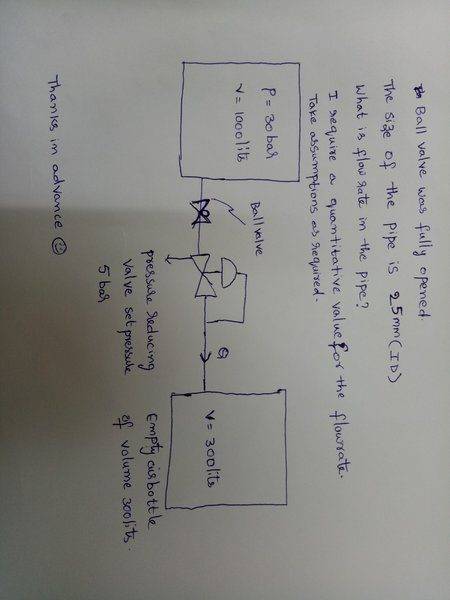 Ball valve was fully opened.
The size of the pipe is 25mm (ID)
What is flow rate in the pipe?
I require a quantitative value for the flowrate.
Take assumptions as required.
P = 30 bar
V = 1000 lits
Ball valve
pressure reducing
valve set pressure
5 bar
Q
V = 300 lits
Empty air bottle
of volume 300 lits.
Thanks in advance ☺